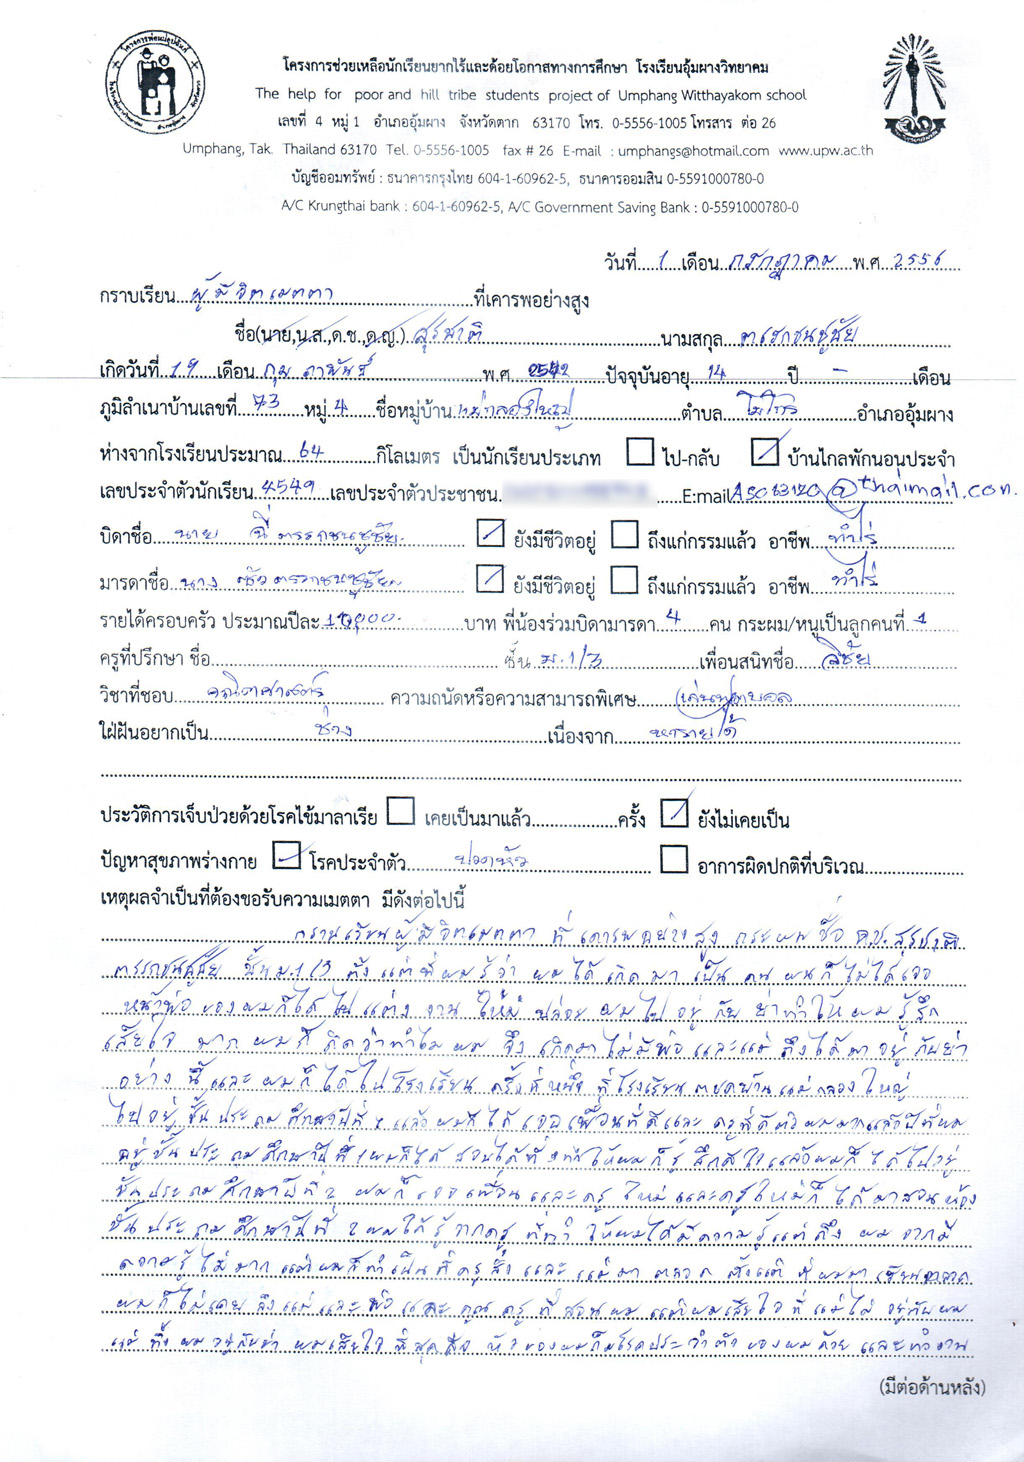 โครงการช่วยเหลือนักเรียนยากไร้และด้อยโอกาสทางการศึกษา โรงเรียนอุ้มผางวิทยาคม
The help for poor and hill tribe students project of Umphang Witthayakom school
เลขที่ 4 หมู่ 1 อำเภออุ้มผาง จังหวัดตาก 63170 โทร. 0-5556-1005 โทรสาร ต่อ 26
Umphang, Tak. Thailand 63170 Tel. 0-5556-1005 fax # 26 E-mail : umphangs@hotmail.com www.upw.ac.th
บัญชีออมทรัพย์ : ธนาคารกรุงไทย 604-1-60962-5, ธนาคารออมสิน 0-5591000780-0
A/C Krungthai bank : 604-1-60962-5, A/C Government Saving Bank : 0-5591000780-0
วันที่ 1 เดือน กรกฎาคม พ.ศ 2556
กราบเรียน ผู้มีจิตเมตตา ที่เคารพอย่างสูง
ชื่อ(นาย,น.ส,ด.ช.,ด.ญ.) สุรชาติ นามสกุล
เกิดวันที่ 19 เดือน กุมภาพันธ์ พ.ศ 2542 ปัจจุบันอายุ 14 ปี - เดือน
ภูมิลำเนาบ้านเลขที่ 73 หมู่ 4 ชื่อหมู่บ้าน แม่กลองใหญ่ ตำบล โมโกร อำเภออุ้มผาง
ห่างจากโรงเรียนประมาณ 64 กิโลเมตร เป็นนักเรียนประเภท ไป-กลับ บ้านไกลพักนอนประจำ
เลขประจำตัวนักเรียน 4549 เลขประจำตัวประชาชน E:mail @thaimail.com.
บิดาชื่อ นาย ยังมีชีวิตอยู่ ถึงแก่กรรมแล้ว อาชีพ ทำไร่
มารดาชื่อ นาง ยังมีชีวิตอยู่ ถึงแก่กรรมแล้ว อาชีพ ทำไร่
รายได้ครอบครัว ประมาณปีละ บาท พี่น้องร่วมบิดามารดา 4 คน กระผม/หนูเป็นลูกคนที่ 1
ครูที่ปรึกษา ชื่อ ชั้น ม.1/3 เพื่อนสนิทชื่อ
วิชาที่ชอบ คณิตศาสตร์ ความถนัดหรือความสามารถพิเศษ เล่นฟุตบอล
ใฝ่ฝันอยากเป็น ช่าง เนื่องจาก หารายได้
ประวัติการเจ็บป่วยด้วยโรคไข้มาลาเรีย เคยเป็นมาแล้ว ครั้ง ยังไม่เคยเป็น
ปัญหาสุขภาพร่างกาย โรคประจำตัว ปวดหัว อาการผิดปกติที่บริเวณ
เหตุผลจำเป็นที่ต้องขอรับความเมตตา มีดังต่อไปนี้
กราบเรียนผู้มีจิตเมตตา ที่เคารพอย่างสูง กระผมชื่อ ด.ช. สุรชาติ
ชั้น ม.1/3 ตั้งแต่ที่ผมรู้ว่า ผมได้เกิดมาเป็นคน ผมก็ไม่ได้เจอ
หน้าพ่อ ของผมก็ได้ไปแต่งงานใหม่ ปล่อยผมไปอยู่กับย่าทำให้ผมรู้สึก
เสียใจมาก ผมก็คิดว่าทำไมผม จึงเกิดมาไม่มีพ่อและแม่ ถึงได้มาอยู่กับย่า
อย่างนี้และผมก็ได้ไปโรงเรียน ครั้งที่หนึ่ง ที่โรงเรียน แม่กลองใหญ่
ไปอยู่ชั้นประถมศึกษาปีที่ 1 แล้วผมก็ได้เจอเพื่อนที่ดีและครู
อยู่ชั้นประถมศึกษาปีที่ 1 ผมก็ได้สอบได้ที่ ทำให้ผมก็รู้สึก แล้วผมก็ได้ไปอยู่
ชั้นประถมศึกษาปีที่ 2 ผมก็เจอเพื่อนและครูใหม่และครูใหม่ก็ได้มาสอนห้อง
ชั้นประถมศึกษาปีที่ 2 ผมได้รู้จากครูที่ทำให้ผมได้มีความรู้แต่ถึงผมจากมี
ความรู้ไม่มาก แต่ผมก็ทำเป็นที่ครูสั่ง และ
ผมก็ไม่เคย แม่และพ่อและคุณครูที่สอนผม แต่ผมเสียใจที่แม่ไม่อยู่กับผม
แม่ทิ้งผมอยู่กับย่า ผมเสียใจที่สุดคือ หัวของผมก็มีโรคประจำตัวของผมด้วย และทำงาน
(มีต่อด้านหลัง)